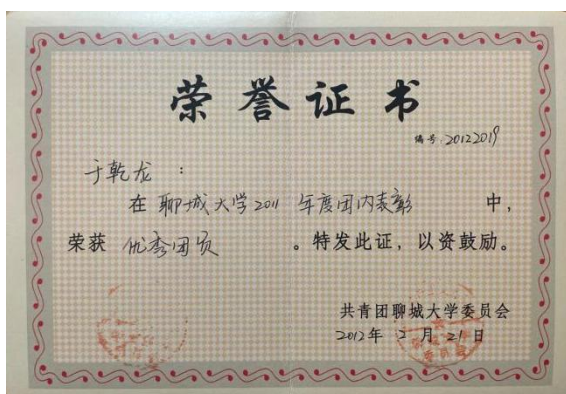 荣誉证书
编号:20122019
于乾龙 :
在 聊城大学2011 年度团内表彰 中,
荣获 优秀团员 。特发此证，以资鼓励。
共青团聊城大学委员会
2012年 2 月 21 日